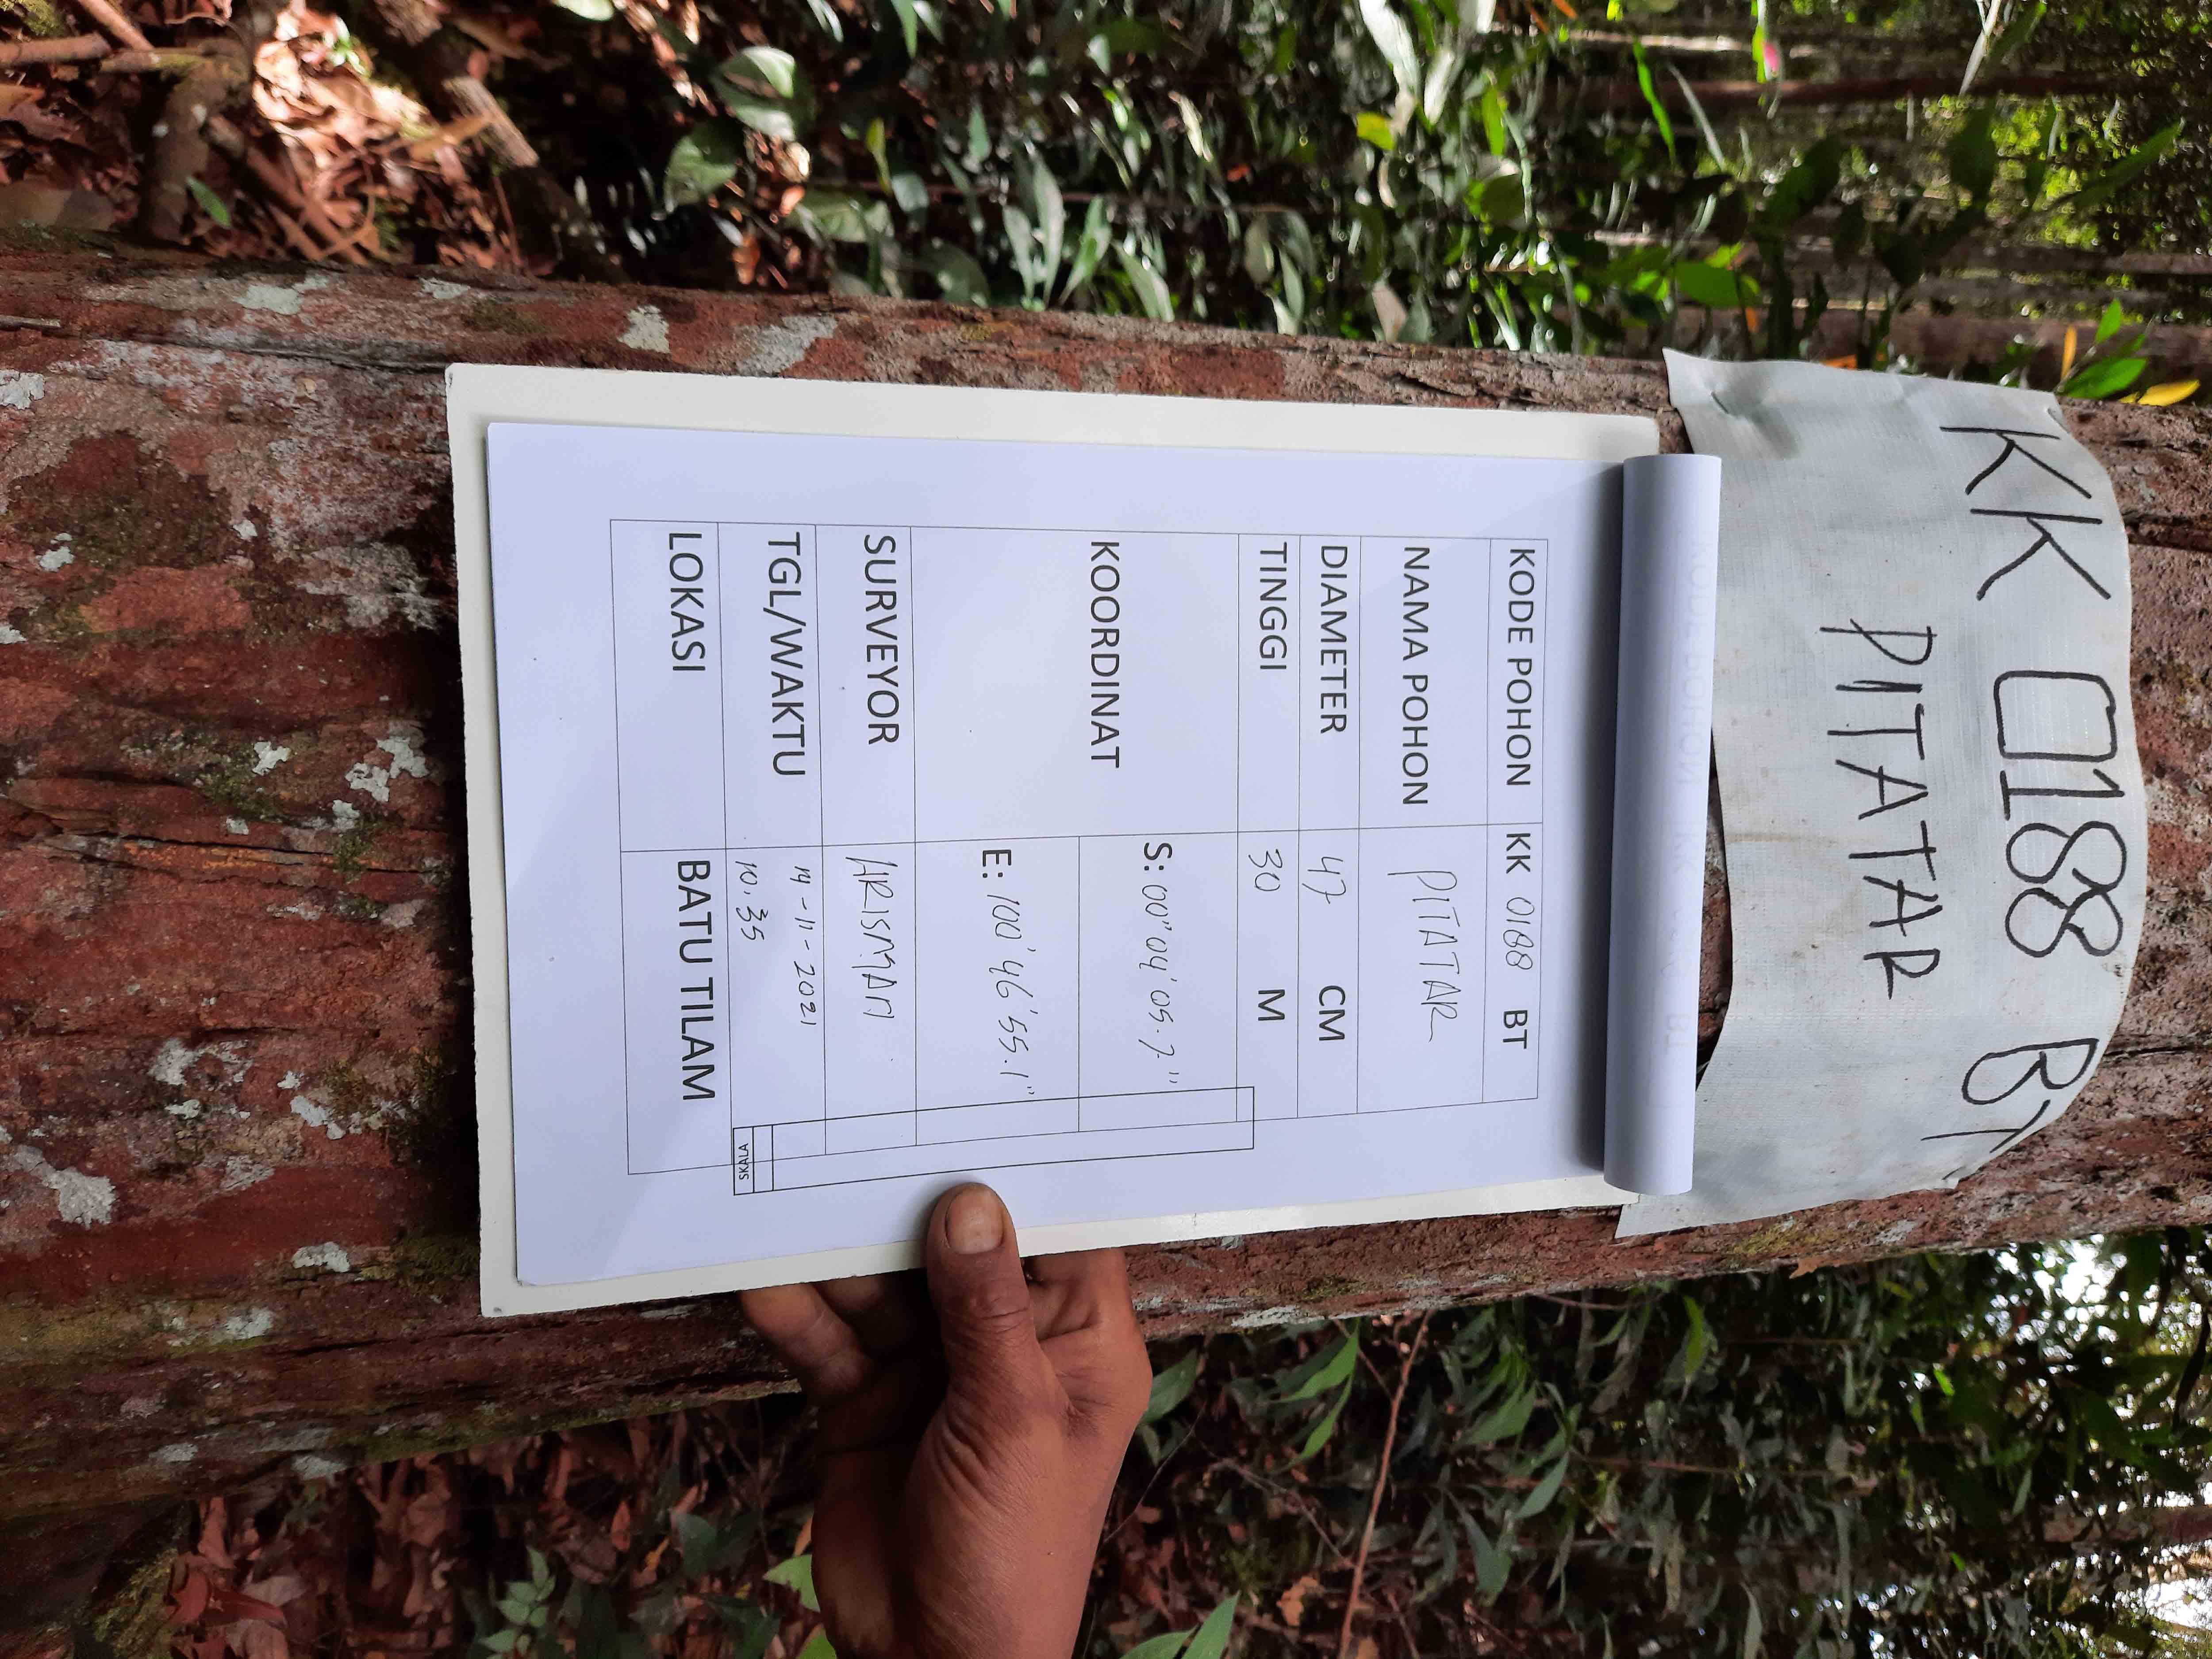 KK 0188 BT
PITATAR
KODE POHON KK 0188 BT
NAMA POHON PITATAR
DIAMETER 47 CM
TINGGI 30 M
KOORDINAT
S: 00" 04' 05.7"
E: 100' 46' 55.1"
SURVEYOR ARISMAN
TGL/WAKTU 14-11-2021
10.35
LOKASI BATU TILAM
SKALA